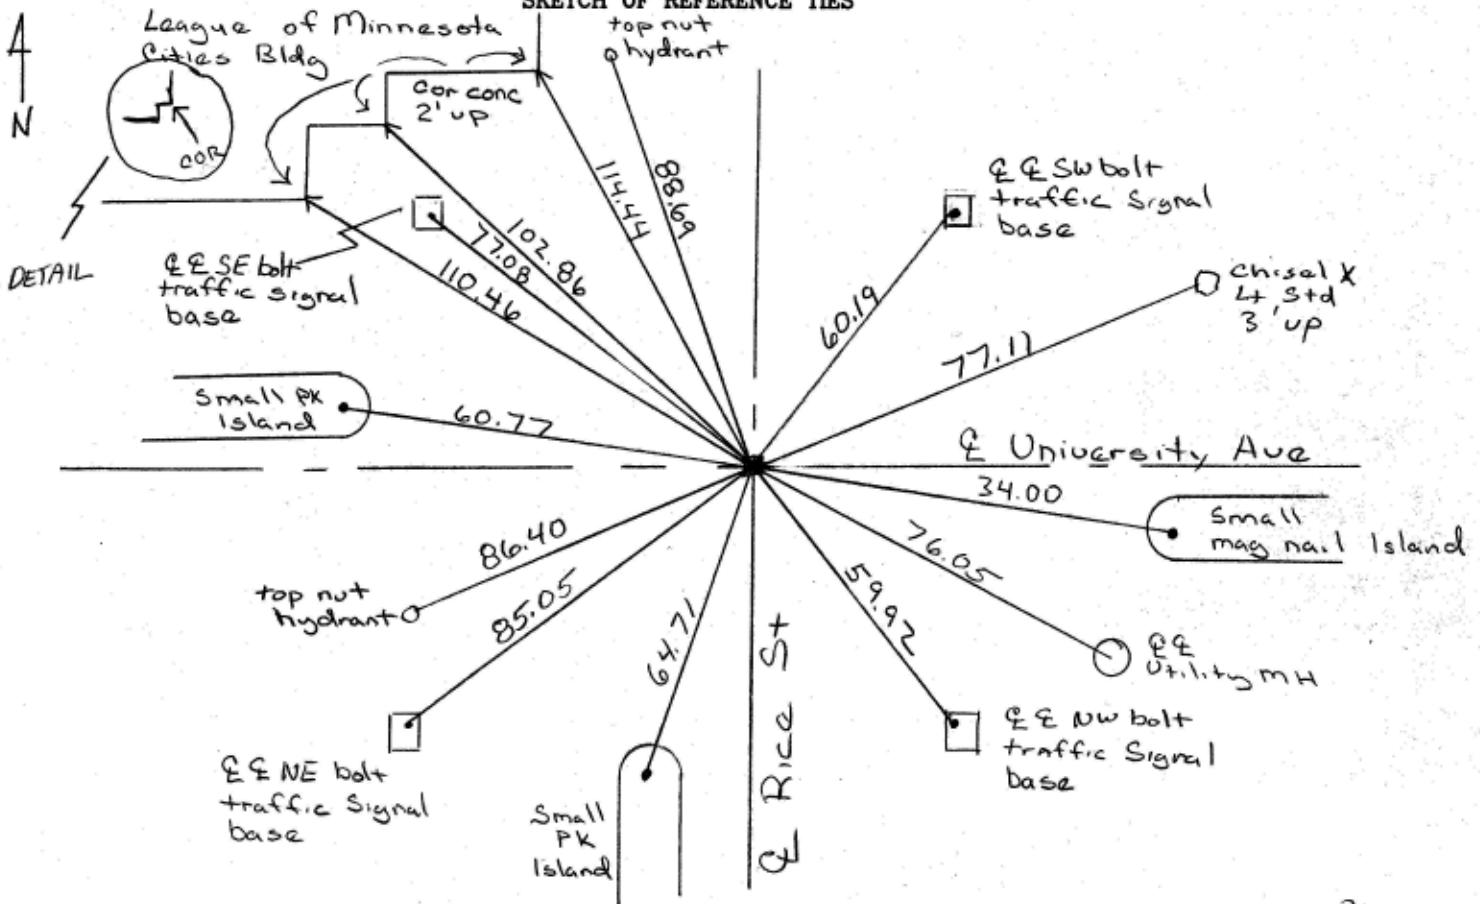 SKETCH OF REFERENCE TIES
League of Minnesota
Cities Bldg
N
COR
DETAIL
cor conc
2' up
top nut
hydrant
114.44
88.69
102.86
77.08
110.46
℄ ℄ SE bolt
traffic signal
base
℄ ℄ SW bolt
traffic Signal
base
60.19
chisel X
Lt Std
3' up
77.11
Small PK
Island
60.77
℄ University Ave
34.00
Small
mag nail Island
76.05
℄ ℄
Utility MH
59.92
℄ ℄ NW bolt
traffic Signal
base
86.40
top nut
hydrant
85.05
℄ ℄ NE bolt
traffic Signal
base
64.71
Small
PK
Island
℄ Rice St